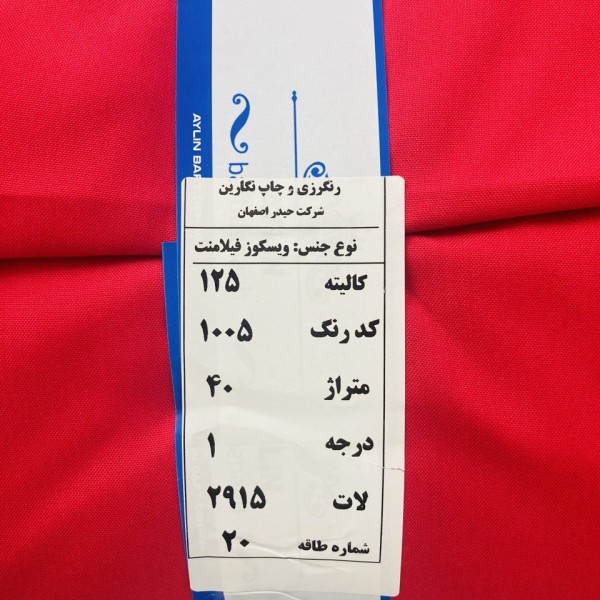 AYLIN BAR
ba
رنگرزی و چاپ نگارین
شرکت حیدر اصفهان
نوع جنس: ویسکوز فیلامنت
کالیته ۱۲۵
کد رنگ ۱۰۰۵
متراژ ۴۰
درجه ۱
لات ۲۹۱۵
شماره طاقه ۲۰